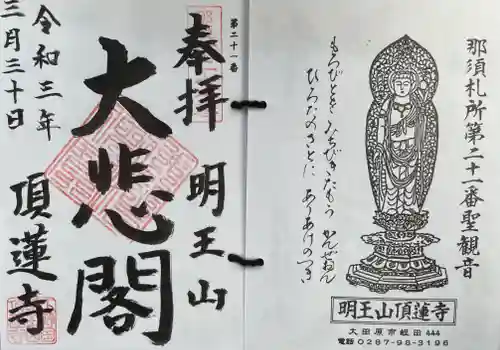 那須札所第二十一番聖観音
もろびとを みちびきたもう かんぜおん
ひろだのさとに ありあけのつき
明王山頂蓮寺
大田原市蛭田 444
電話 0287-98-3196
第二十一番
奉拝
明王山
大悲閣
頂蓮寺
令和三年
三月三十日